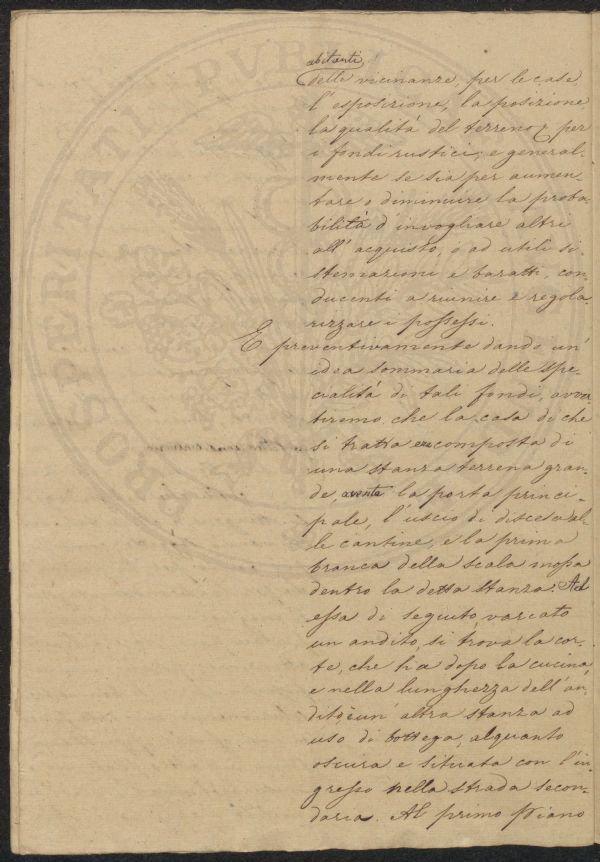 abitanti
delle vicinanze, per le case,
l'esposizione, la posizione
la qualità del terreno per
i fondi rustici; e general-
mente se sia per aumen-
tare o diminuire la proba-
bilità d'invogliare altri
all'acquisto, o ad utili si-
stemazioni e baratti, con-
ducenti a riunire e regola-
rizzare i possessi.
E preventivamente dando un'
idea sommaria delle spe-
cialità di tali fondi, avver-
tiremo che la casa di che
si tratta era composta di
una stanza terrena gran-
de, avente la porta princi-
pale, l'uscio di discesa al-
le cantine, e la prima
branca della scala mossa
dentro la detta stanza. Ad
essa di seguito, varcato
un andito, si trova la cor-
te, che ha dopo la cucina,
e nella lunghezza dell'an-
dito è un'altra stanza ad
uso di bottega, alquanto
oscura e situata con l'in-
gresso nella strada secon-
daria. Al primo piano
PROSPERITATI PUBLIC